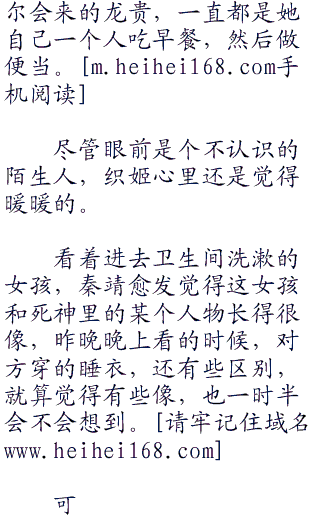 尔会来的龙贵，一直都是她
自己一个人吃早餐，然后做
便当。[m.heihei168.com手
机阅读]
尽管眼前是个不认识的
陌生人，织姬心里还是觉得
暖暖的。
看着进去卫生间洗漱的
女孩，秦靖愈发觉得这女孩
和死神里的某个人物长得很
像，昨晚晚上看的时候，对
方穿的睡衣，还有些区别，
就算觉得有些像，也一时半
会不会想到。[请牢记住域名
www.heihei168.com]
可